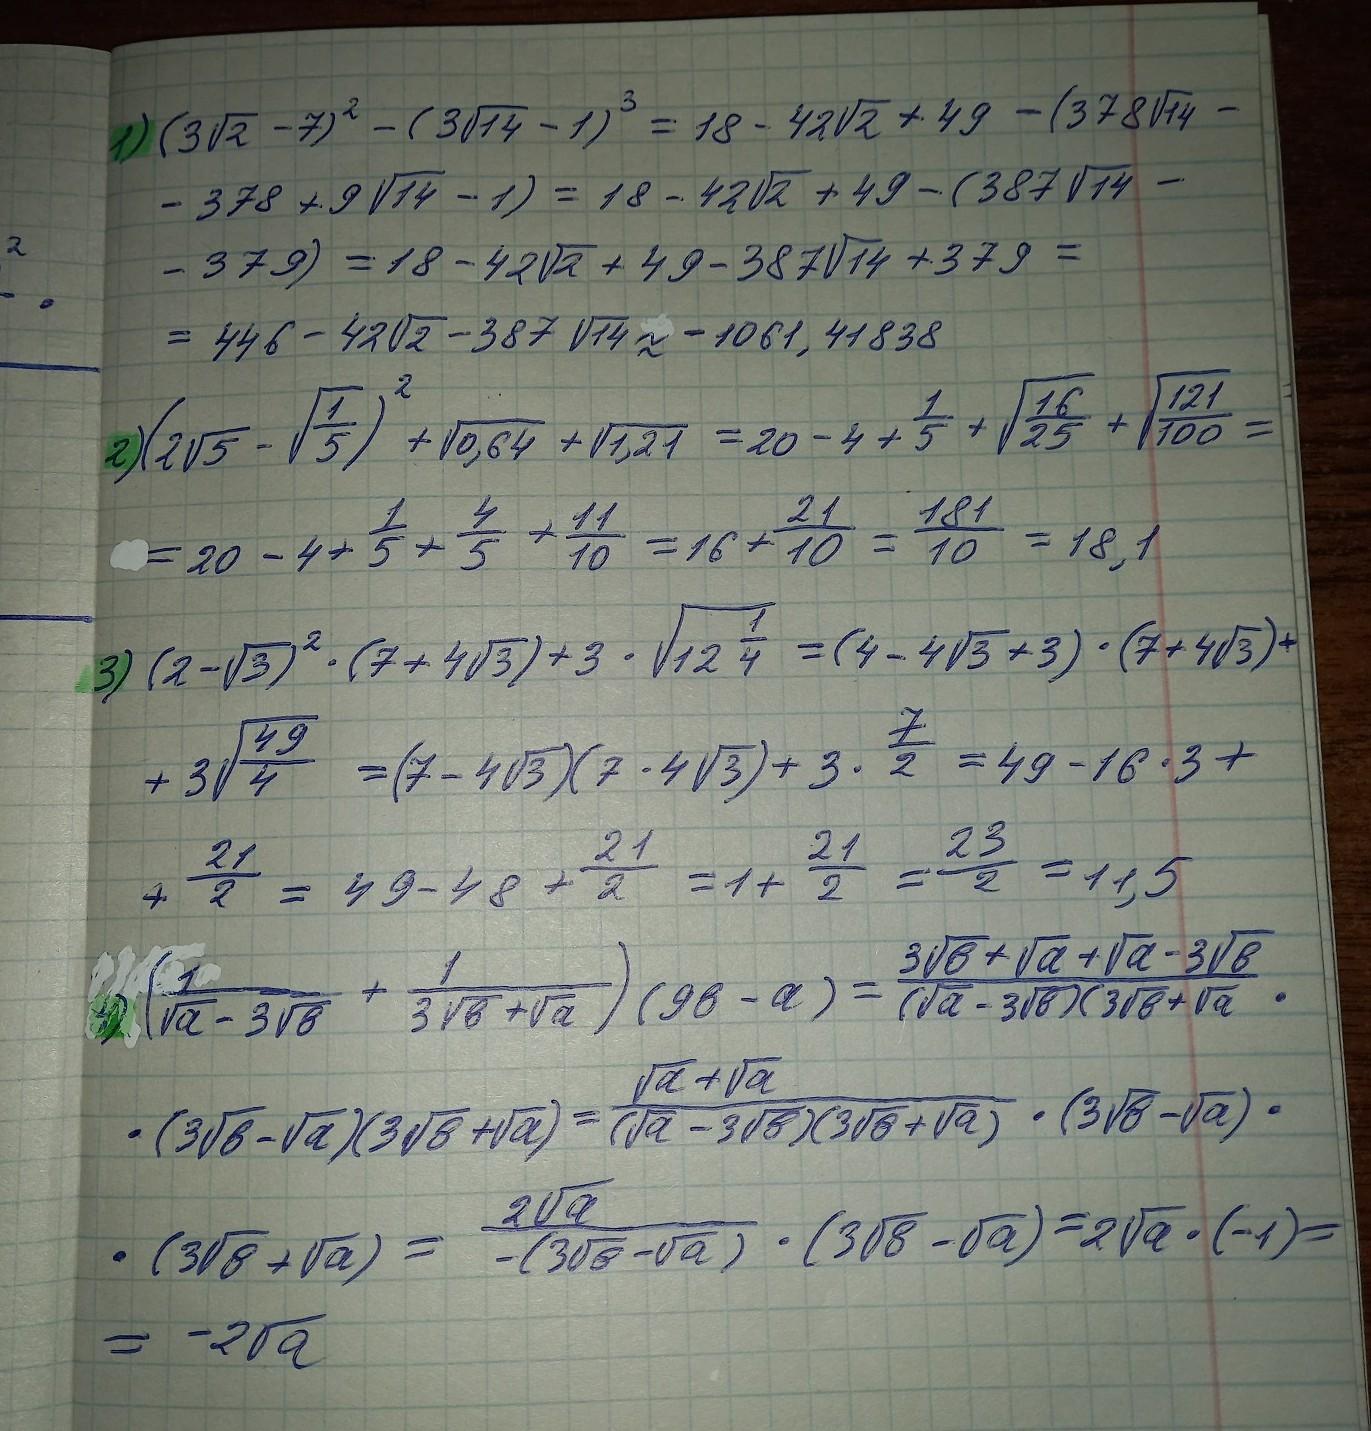 1) (3√2 - 7)² - (3√14 - 1)³ = 18 - 42√2 + 49 - (378√14 -
- 378 + 9√14 - 1) = 18 - 42√2 + 49 - (387√14 -
- 379) = 18 - 42√2 + 49 - 387√14 + 379 =
= 446 - 42√2 - 387√14 ≈ -1061,41838
2) (2√5 - √(1/5))² + √0,64 + √1,21 = 20 - 4 + 1/5 + √(16/25) + √(121/100) =
= 20 - 4 + 1/5 + 4/5 + 11/10 = 16 + 21/10 = 181/10 = 18,1
3) (2 - √3)² · (7 + 4√3) + 3 · √(12 1/4) = (4 - 4√3 + 3) · (7 + 4√3) +
+ 3√(49/4) = (7 - 4√3)(7 · 4√3) + 3 · 7/2 = 49 - 16 · 3 +
+ 21/2 = 49 - 48 + 21/2 = 1 + 21/2 = 23/2 = 11,5
4) (1/(√a - 3√в) + 1/(3√в + √a)) (9в - a) = (3√в + √a + √a - 3√в)/((√a - 3√в)(3√в + √a ·
· (3√в - √a)(3√в + √a) = (√a + √a)/((√a - 3√в)(3√в + √a)) · (3√в - √a) ·
· (3√в + √a) = 2√a/(-(3√в - √a)) · (3√в - √a) = 2√a · (-1) =
= -2√a